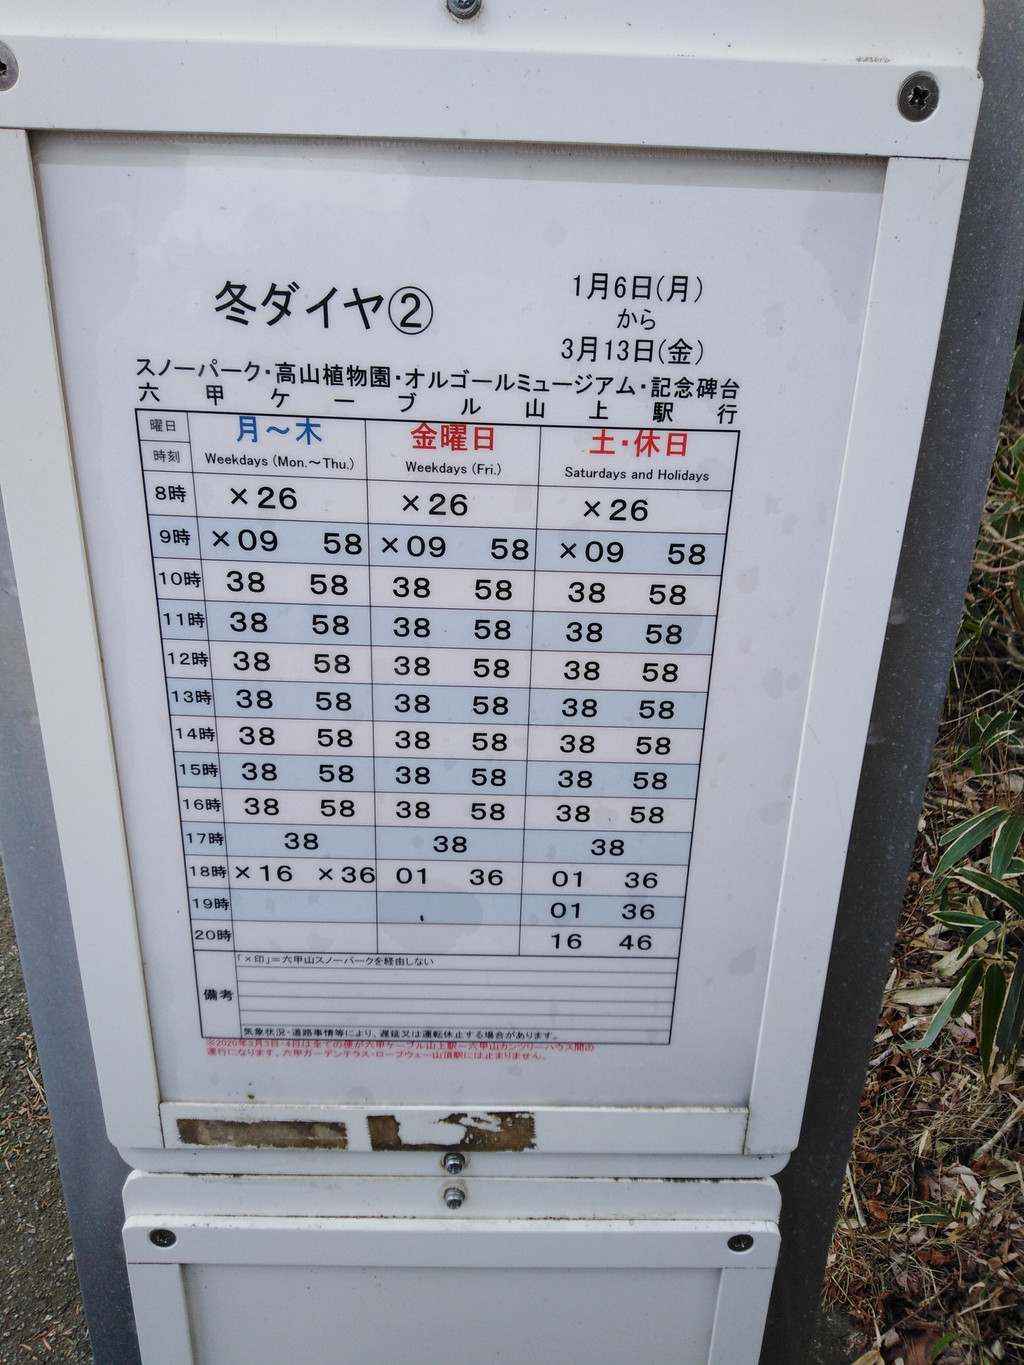 冬ダイヤ②
1月6日(月)
から
3月13日(金)
スノーパーク・高山植物園・オルゴールミュージアム・記念碑台
六甲ケーブル山上駅行
曜日 月～木 金曜日 土・休日
時刻 Weekdays (Mon.～Thu.) Weekdays (Fri.) Saturdays and Holidays
8時 ×26 ×26 ×26
9時 ×09 58 ×09 58 ×09 58
10時 38 58 38 58 38 58
11時 38 58 38 58 38 58
12時 38 58 38 58 38 58
13時 38 58 38 58 38 58
14時 38 58 38 58 38 58
15時 38 58 38 58 38 58
16時 38 58 38 58 38 58
17時 38 38 38
18時 ×16 ×36 01 36 01 36
19時 01 36
20時 16 46
備考 「×印」＝六甲山スノーパークを経由しない
気象状況・道路事情等により、遅延又は運転休止する場合があります。
※2020年3月3日・4日は全ての便が六甲ケーブル山上駅～六甲山カンツリーハウス間の
運行になります。六甲ガーデンテラス・ロープウェー山頂駅には止まりません。